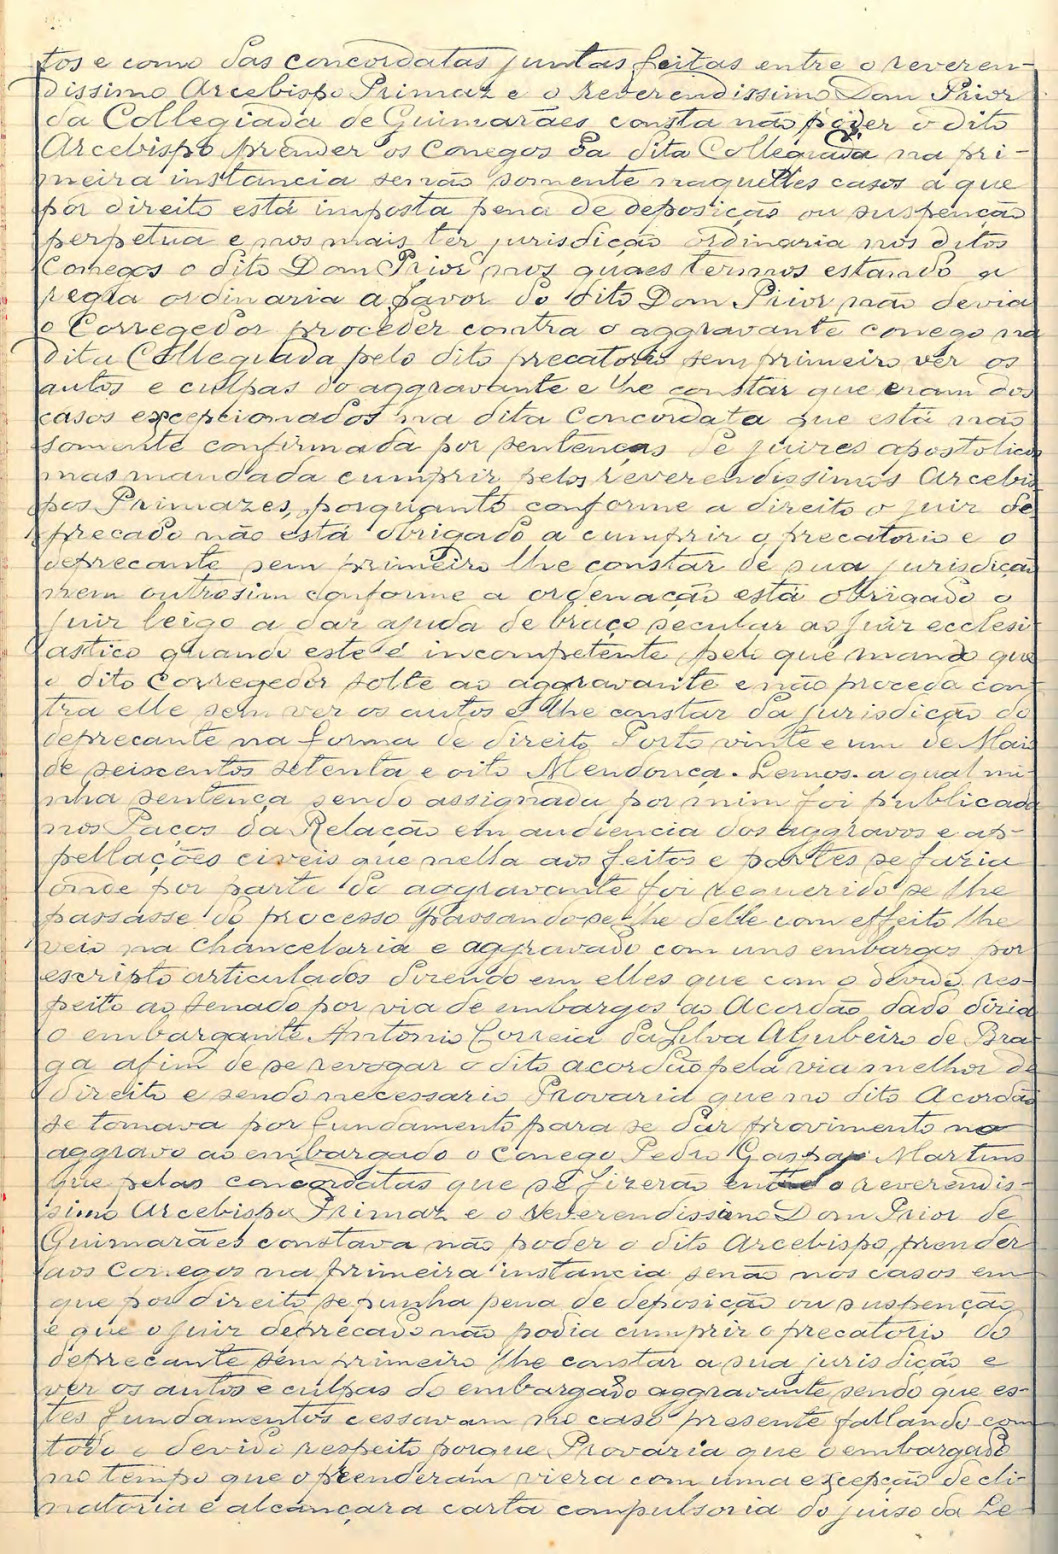 tos e como das concordatas juntas feitas entre o reveren-
dissimo Arcebispo Primaz e o Reverendissimo Dom Prior
da Collegiada de Guimarães consta não poder o dito
Arcebispo prender os Conegos da dita Collegiada na pri-
meira instancia senão somente naquelles casos a que
por direito está imposta pena de deposição ou suspenção
perpetua e nos mais ter jurisdição ordinaria nos ditos
Conegos o dito Dom Prior nos quaes termos estando a
regra ordinaria a favor do dito Dom Prior não devia
o Corregedor proceder contra o aggravante conego na
dita Collegiada pelo dito precatorio sem primeiro ver os
autos e culpas do aggravante e lhe constar que eram dos
casos excepcionados na dita Concordata que está não
somente confirmada por sentenças de juizes apostolicos
mas mandada cumprir pelos reverendissimos Arcebis
pos Primazes, porquanto conforme a direito o juiz de
precado não está obrigado a cumprir o precatorio e o
deprecante sem primeiro lhe constar de sua jurisdição
nem outrosim conforme a ordenação está obrigado o
juiz leigo a dar ajuda de braço secular ao juiz ecclesi
astico quando este é incompetente pelo que mando que
o dito Corregedor solte ao aggravante e não proceda con
tra elle sem ver os autos e lhe constar da jurisdicção do
deprecante na forma de direito Porto vinte e um de Maio
de seiscentos setenta e oito Mendonca. Lemos. a qual mi
nha sentença sendo assignada por mim foi publicada
nos Paços da Relação em audiencia dos aggravos e ap-
pellações civeis que nella aos feitos e partes se fazia
onde por parte do aggravante foi requerido se lhe
passasse do processo passando-se-lhe delle com effeito lhe
veio na Chancelaria e aggravado com uns embargos por
escripto articulados dizendo em elles que com o devido res-
peito ao senado por via de embargos ao Acordão dado diria
o embargante Antonio Correia da Silva Aljubeiro de Bra-
ga afim de se revogar o dito acordão pela via melhor de
direito e sendo necessario Provaria que no dito Acordão
se tomava por fundamento para se dar provimento no
aggravo ao embargado o Conego Pedro Gaspar Martins
que pelas concordatas que se fizerão entre o reverendis-
simo Arcebispo Primaz e o Reverendissimo Dom Prior de
Guimarães constava não poder o dito Arcebispo prender
aos Conegos na primeira instancia senão nos casos em
que por direito se punha pena de deposição ou suspenção
e que o juiz deprecado não podia cumprir o precatorio do
deprecante sem primeiro lhe constar a sua jurisdição e
ver os autos e culpas do embargado aggravante sendo que es-
tes fundamentos cessavam no caso presente fallando com
todo o devido respeito porque Provaria que o embargado
no tempo que o prenderam viera com uma excepção decli-
natoria e alcançara carta compulsoria do juiso da Le-